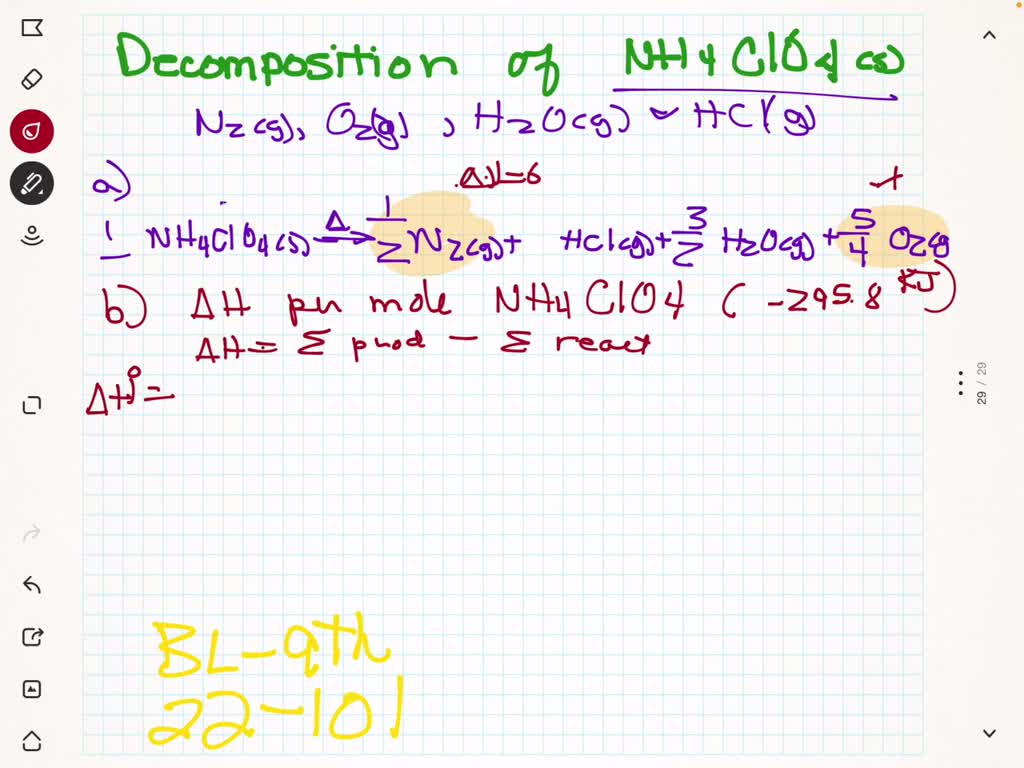 Decomposition of NH4ClO4(s)
N2(g), O2(g), H2O(g) HCl(g)
a)
ΔN=6
1 NH4ClO4(s) Δ→ 1/2 N2(g) + HCl(g) + 3/2 H2O(g) + 5/4 O2(g
b) ΔH per mole NH4ClO4 (-295.8 KJ)
ΔH = Σ prod - Σ react
ΔH° =
29 / 29
BL-9th
22-101